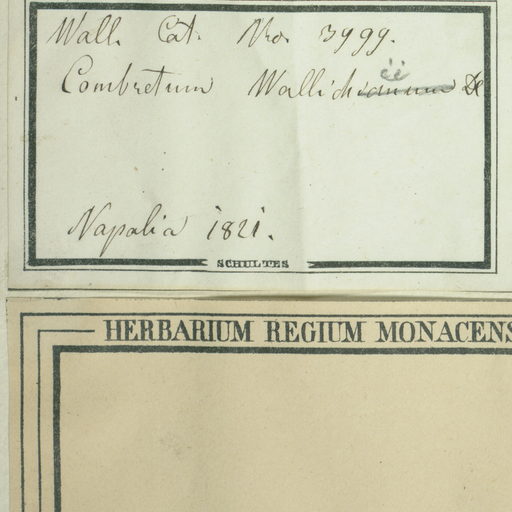 Wall. Cat. Nro. 3999.
Combretum Wallichii DC
Napalia 1821.
SCHULTES
HERBARIUM REGIUM MONACENS